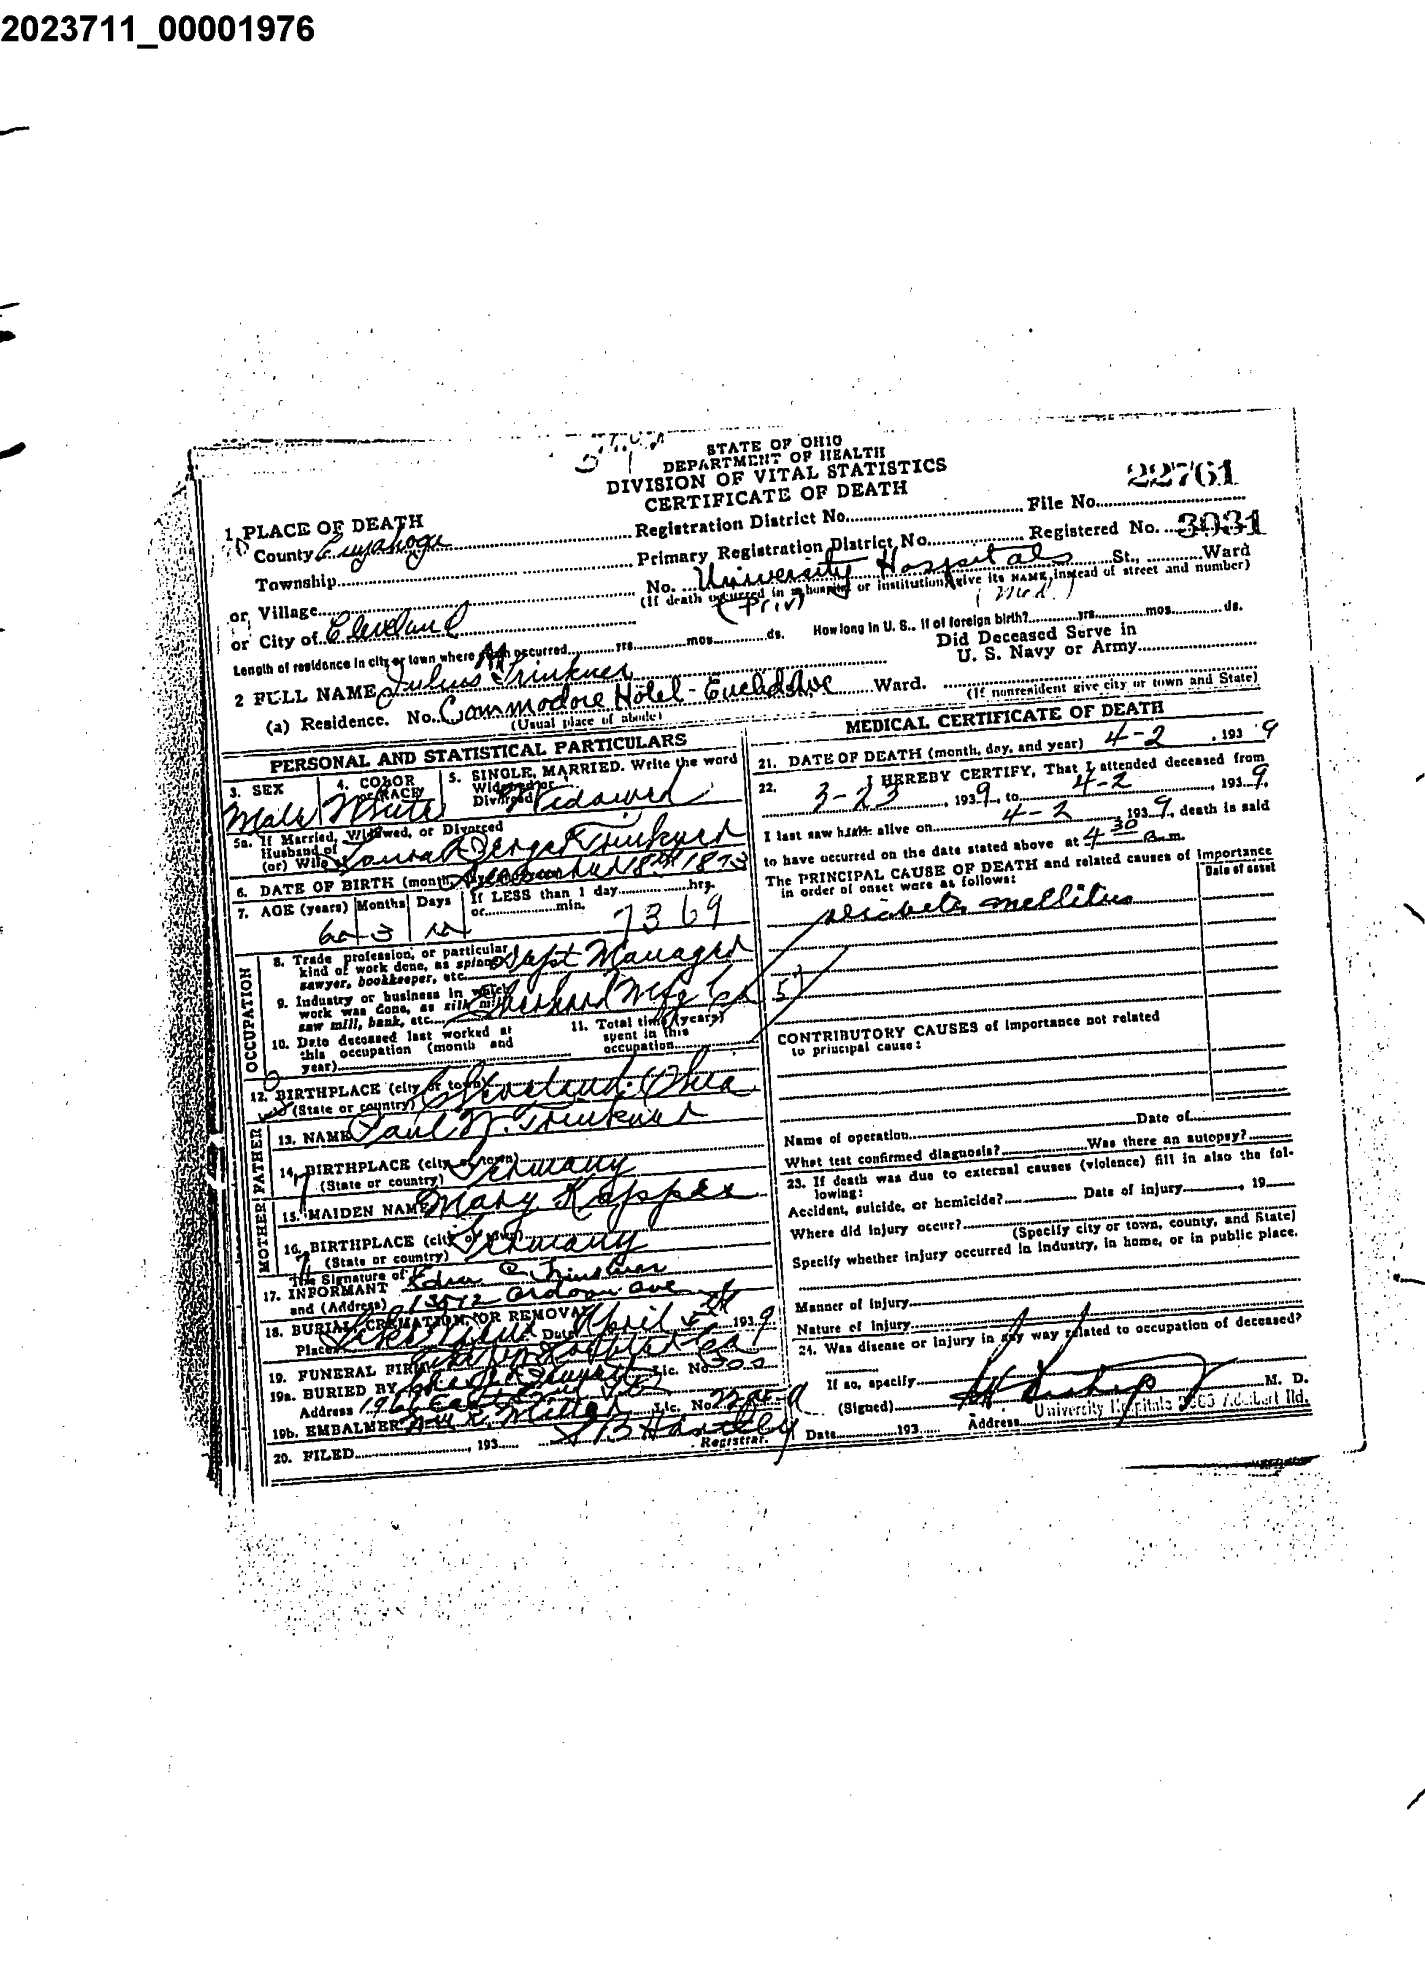 2023711_00001976
STATE OF OHIO
DEPARTMENT OF HEALTH
DIVISION OF VITAL STATISTICS
CERTIFICATE OF DEATH
22761
1. PLACE OF DEATH
County Cuyahoga Registration District No. File No.
Township Primary Registration District No. Registered No. 3031
or Village No. University Hospitals St., Ward
(If death occurred in a hospital or institution, give its NAME instead of street and number)
or City of Cleveland (Priv) (Med.)
Length of residence in city or town where death occurred yrs. mos. ds. How long in U. S., if of foreign birth? yrs. mos. ds.
2 FULL NAME Julius Trinkner Did Deceased Serve in U. S. Navy or Army
(a) Residence. No. Commodore Hotel - Euclid Ave Ward.
(Usual place of abode) (If nonresident give city or town and State)
PERSONAL AND STATISTICAL PARTICULARS
3. SEX 4. COLOR or RACE 5. SINGLE, MARRIED. Write the word Widowed or Divorced
Male White Widowed
5a. If Married, Widowed, or Divorced
Husband of
(or) Wife Trinkner
6. DATE OF BIRTH (month, 18th 1873
7. AGE (years) Months Days If LESS than 1 day hrs.
or min.
3 73 69
OCCUPATION
8. Trade, profession, or particular
kind of work done, as spinner,
sawyer, bookkeeper, etc. Dept Manager
9. Industry or business in which
work was done, as silk mill,
saw mill, bank, etc. Eberhard Mfg Co 57
10. Date deceased last worked at
this occupation (month and
year)
11. Total time (years)
spent in this
occupation
12. BIRTHPLACE (city or town) Cleveland, Ohio
(State or country)
FATHER
13. NAME Paul Trinkner
14. BIRTHPLACE (city or town) Germany
(State or country)
MOTHER
15. MAIDEN NAME Mary
16. BIRTHPLACE (city or town) Germany
(State or country)
The Signature of
17. INFORMANT Edna C Trinkner
and (Address) Ave
18. BURIAL, CREMATION, OR REMOVAL
Place Date April 1939
19. FUNERAL FIRM Lic. No.
19a. BURIED BY
Address
19b. EMBALMER Miller Lic. No.
20. FILED , 193 Registrar.
MEDICAL CERTIFICATE OF DEATH
21. DATE OF DEATH (month, day, and year) 4-2 , 1939
22. I HEREBY CERTIFY, That I attended deceased from
3-23 , 1939, to 4-2 , 1939,
I last saw him alive on 4-2 , 1939, death is said
to have occurred on the date stated above at 4 30 a. m.
The PRINCIPAL CAUSE OF DEATH and related causes of importance
in order of onset were as follows: Date of onset
diabetes mellitus
CONTRIBUTORY CAUSES of importance not related
to principal cause:
Name of operation Date of
What test confirmed diagnosis? Was there an autopsy?
23. If death was due to external causes (violence) fill in also the fol-
lowing:
Accident, suicide, or homicide? Date of injury , 19
Where did injury occur?
(Specify city or town, county, and State)
Specify whether injury occurred in industry, in home, or in public place.
Manner of injury
Nature of injury
24. Was disease or injury in any way related to occupation of deceased?
If so, specify
(Signed) M. D.
Date 193 Address University Hospitals